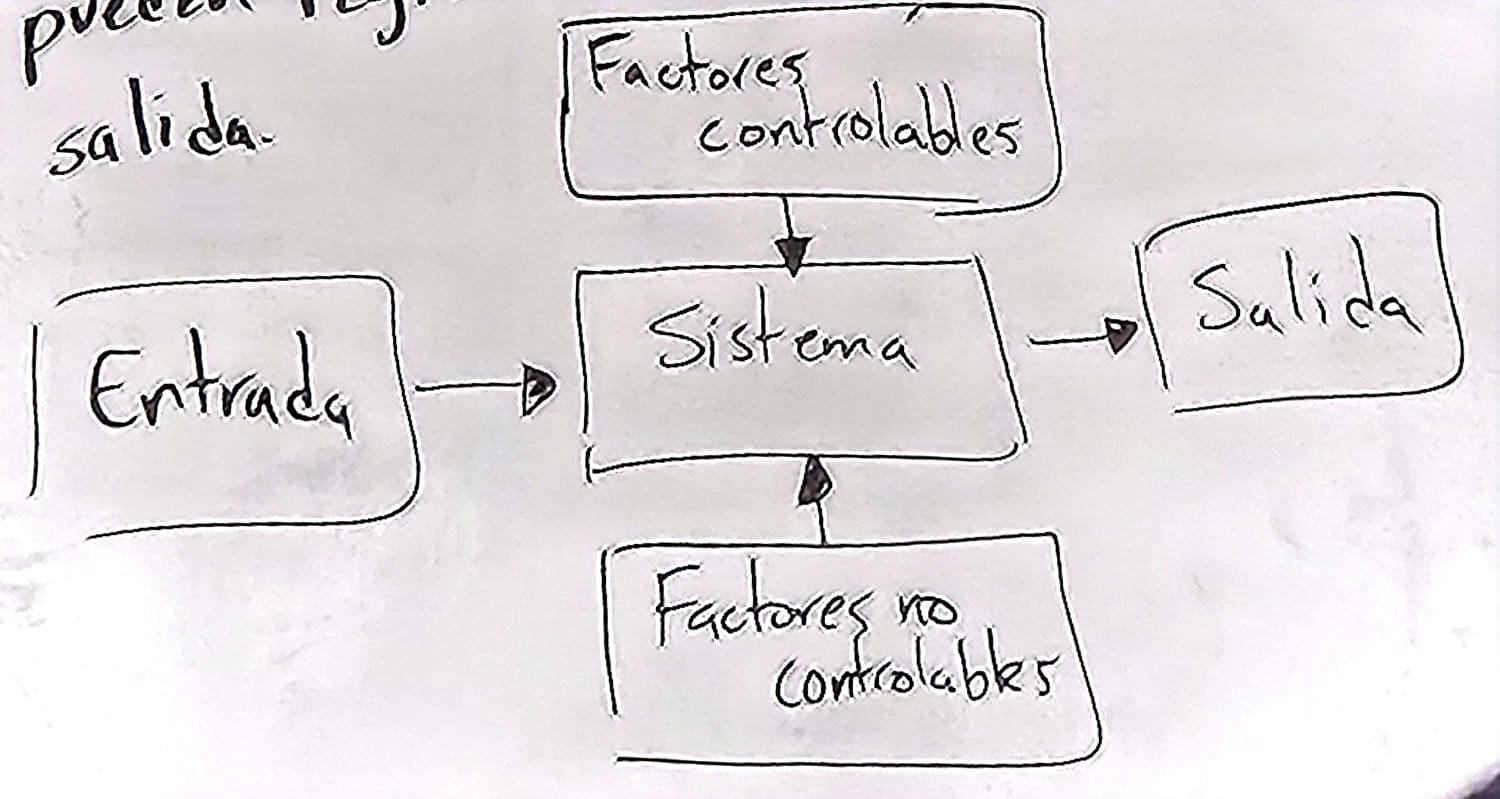 pueden
salida.
Factores
controlables
Entrada
Sistema
Salida
Factores no
controlables